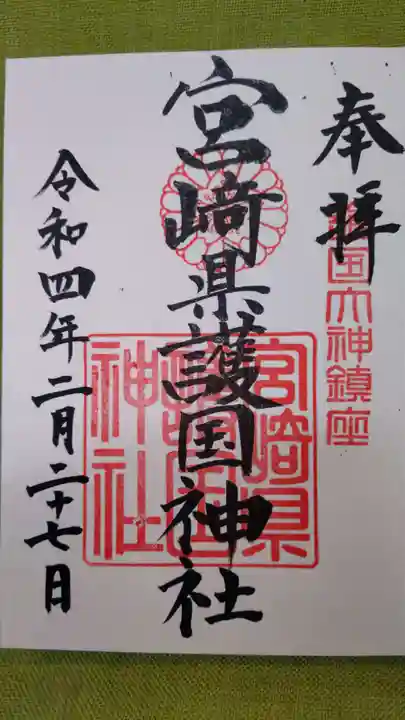 奉拝
護国大神鎮座
宮崎県護国神社
宮崎県
護国
神社
令和四年二月二十七日